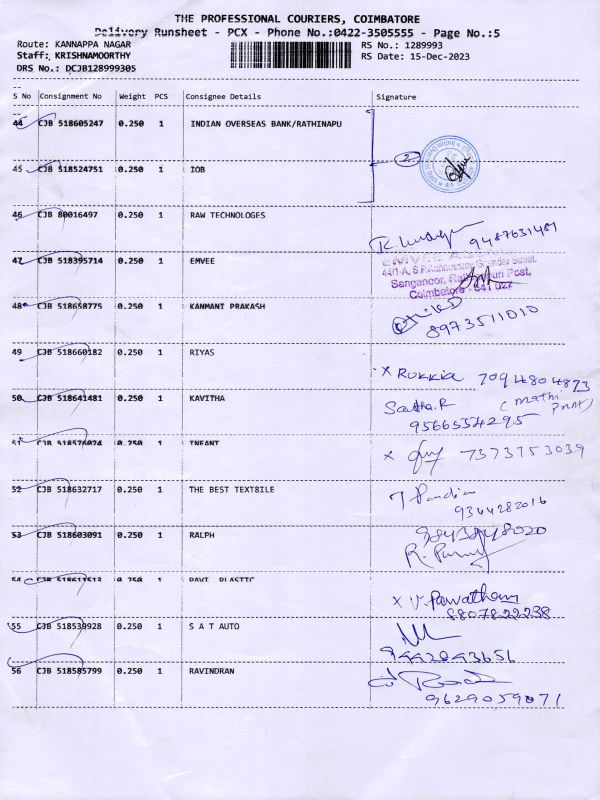 THE PROFESSIONAL COURIERS, COIMBATORE
Delivery Runsheet - PCX - Phone No.:0422-3505555 - Page No.:5
Route: KANNAPPA NAGAR
Staff: KRISHNAMOORTHY
DRS No.: DCJB128999305
RS No.: 1289993
RS Date: 15-Dec-2023
S No Consignment No Weight PCS Consignee Details Signature
44 CJB 518605247 0.250 1 INDIAN OVERSEAS BANK/RATHINAPU
2
45 CJB 518524751 0.250 1 IOB
46 CJB 80016497 0.250 1 RAW TECHNOLOGES
9487631481
47 CJB 518395714 0.250 1 EMVEE
Sanganoor, Post,
Coimbatore - 641 027
48 CJB 518658775 0.250 1 KANMANI PRAKASH
8973511010
49 CJB 518660182 0.250 1 RIYAS
x Rukkia 7094804873
50 CJB 518641481 0.250 1 KAVITHA
(mathi print)
9566534295
51 CJB 518576024 0.250 1 INFANT
x 7373753039
52 CJB 518632717 0.250 1 THE BEST TEXT8ILE
9344282016
53 CJB 518603091 0.250 1 RALPH
54 CJB 518617513 0.250 1 RAVI PLASTIC
x V. Parvatham
8807822238
55 CJB 518539928 0.250 1 S A T AUTO
9442043656
56 CJB 518585799 0.250 1 RAVINDRAN
9629059071